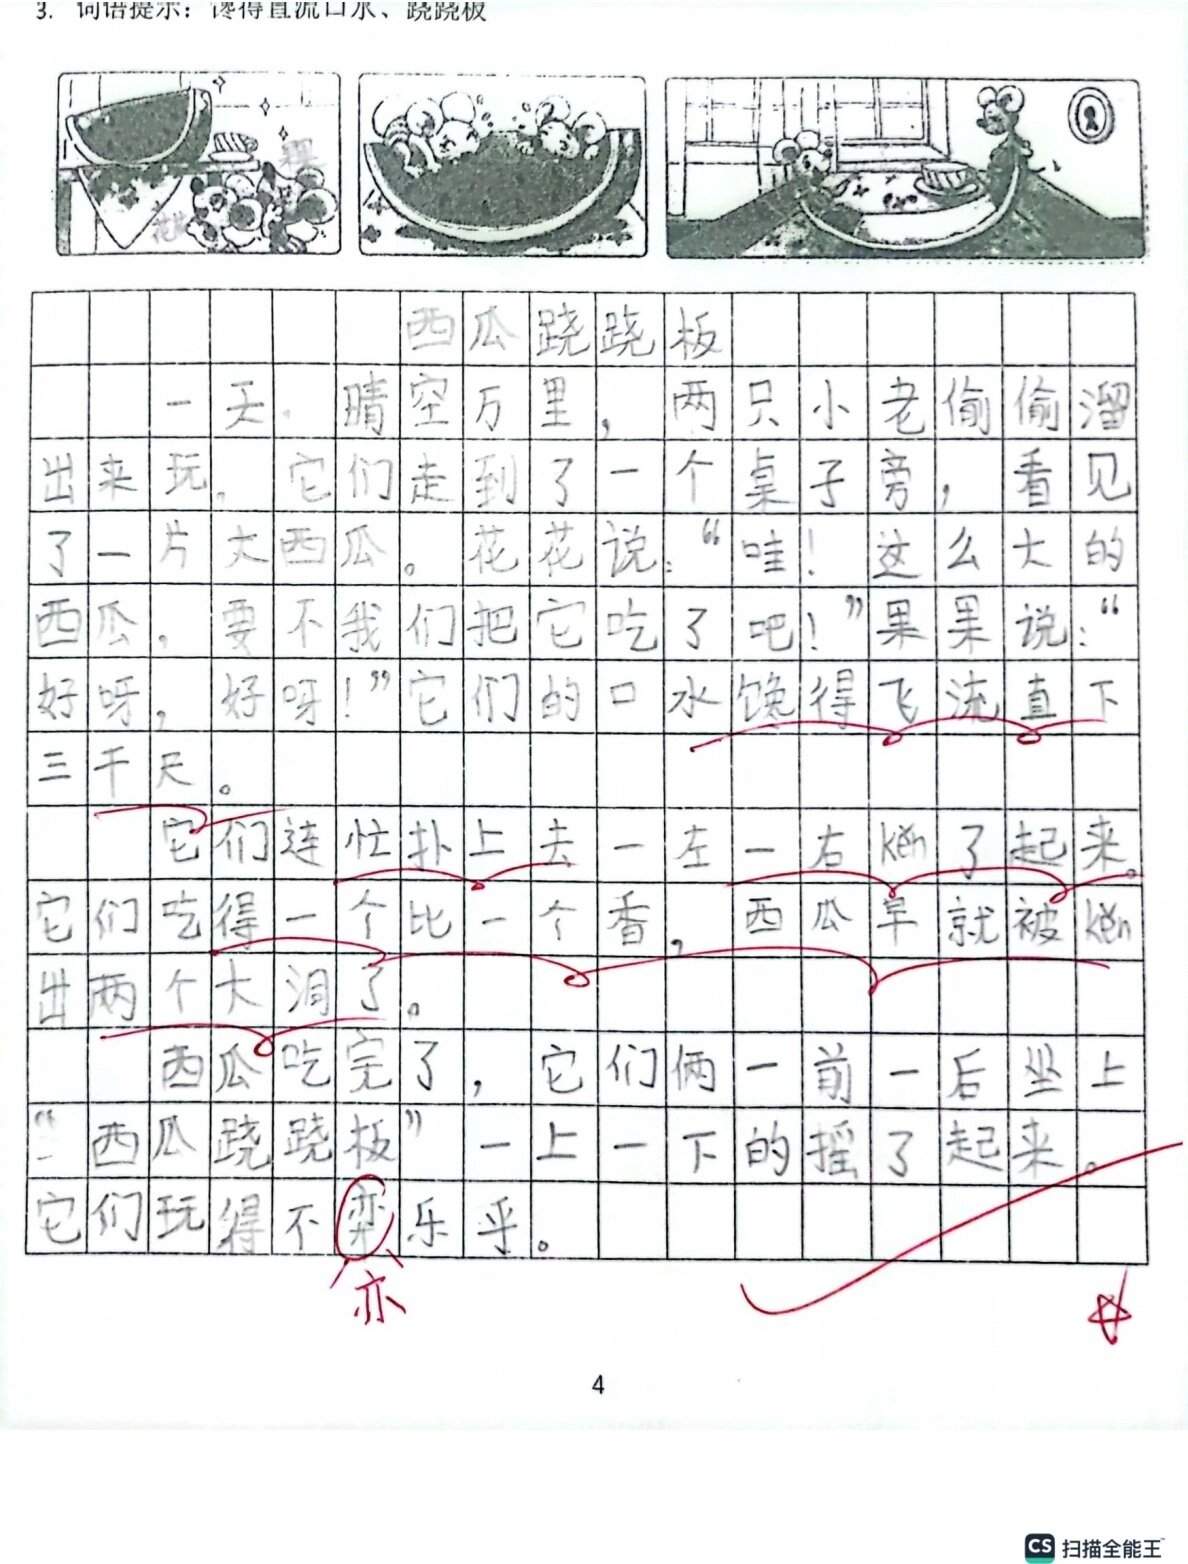 3. 词语提示：馋得直流口水、跷跷板
花花
果果
西瓜跷跷板
一天，晴空万里，两只小老偷偷溜
出来玩。它们走到了一个桌子旁，看见
了一片大西瓜。花花说：“哇！这么大的
西瓜，要不我们把它吃了吧！”果果说：“
好呀，好呀！”它们的口水馋得飞流直下
三千尺。
它们连忙扑上去一左一右kěn了起来。
它们吃得一个比一个香，西瓜早就被kěn
出两个大洞了。
西瓜吃完了，它们俩一前一后坐上
“西瓜跷跷板”一上一下的摇了起来。
它们玩得不弈乐乎。
亦
4
CS 扫描全能王